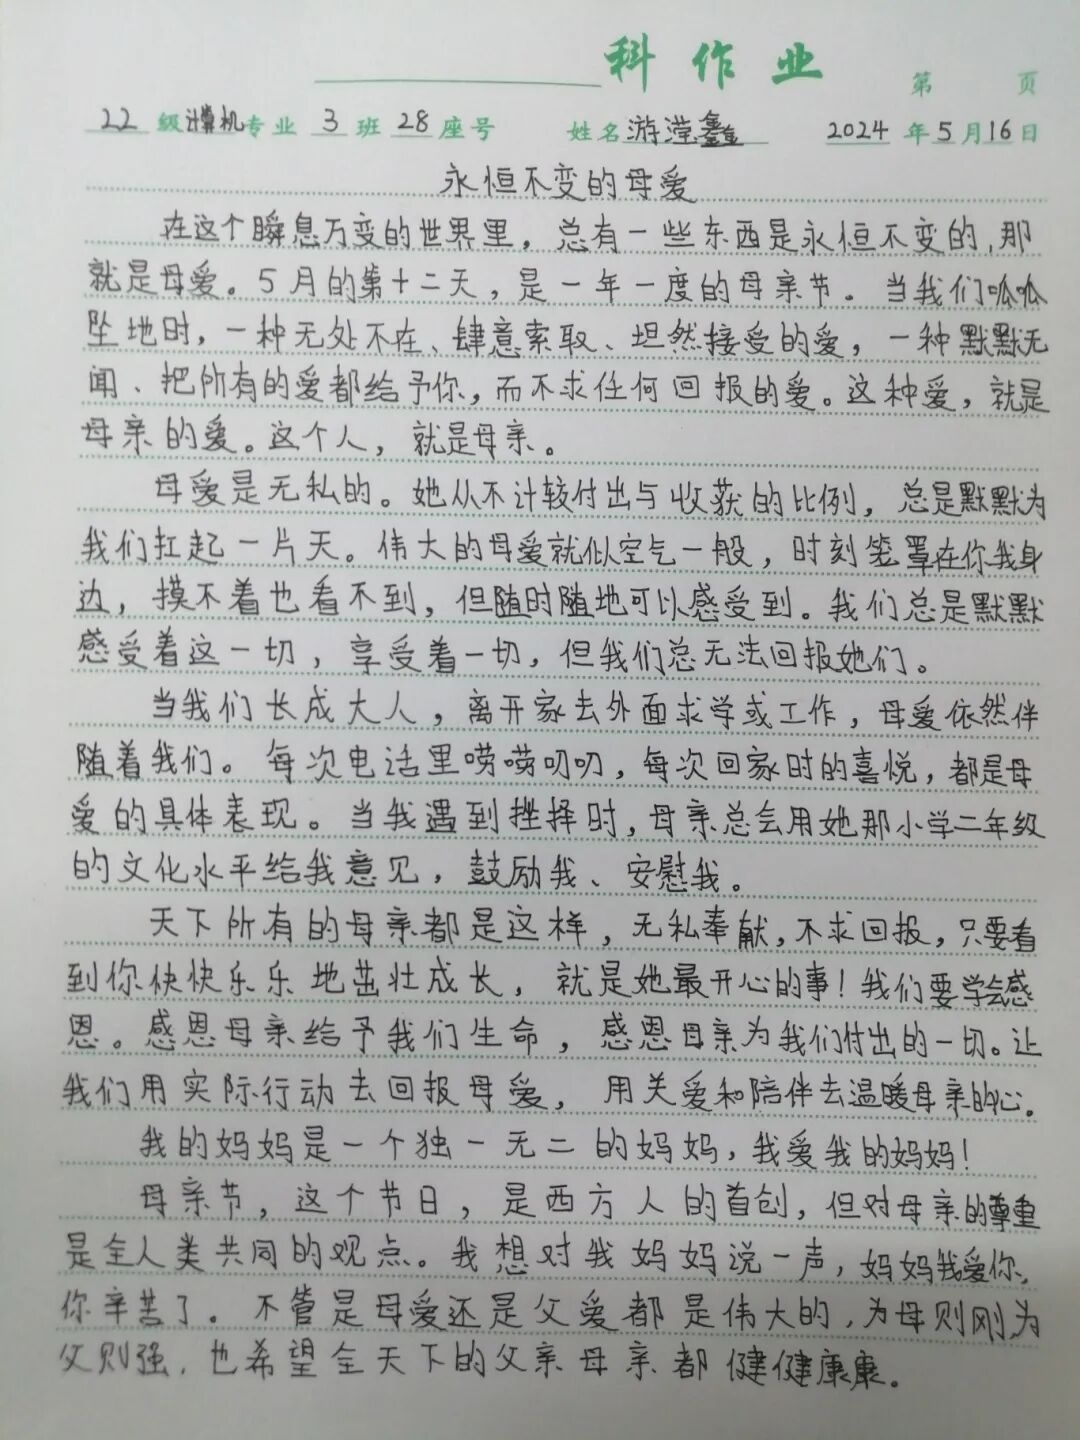 科作业
第 页
22级计算机专业 3班28座号 姓名游滢鑫 2024年5月16日
永恒不变的母爱
在这个瞬息万变的世界里，总有一些东西是永恒不变的，那
就是母爱。5月的第十二天，是一年一度的母亲节。当我们呱呱
坠地时，一种无处不在、肆意索取、坦然接受的爱，一种默默无
闻、把所有的爱都给予你，而不求任何回报的爱。这种爱，就是
母亲的爱。这个人，就是母亲。
母爱是无私的。她从不计较付出与收获的比例，总是默默为
我们扛起一片天。伟大的母爱就似空气一般，时刻笼罩在你我身
边，摸不着也看不到，但随时随地可以感受到。我们总是默默
感受着这一切，享受着一切，但我们总无法回报她们。
当我们长成大人，离开家去外面求学或工作，母爱依然伴
随着我们。每次电话里唠唠叨叨，每次回家时的喜悦，都是母
爱的具体表现。当我遇到挫择时，母亲总会用她那小学二年级
的文化水平给我意见，鼓励我、安慰我。
天下所有的母亲都是这样，无私奉献，不求回报，只要看
到你快快乐乐地茁壮成长，就是她最开心的事！我们要学会感
恩。感恩母亲给予我们生命，感恩母亲为我们付出的一切。让
我们用实际行动去回报母爱，用关爱和陪伴去温暖母亲的心。
我的妈妈是一个独一无二的妈妈，我爱我的妈妈！
母亲节，这个节日，是西方人的首创，但对母亲的尊重
是全人类共同的观点。我想对我妈妈说一声，妈妈我爱你，
你辛苦了。不管是母爱还是父爱都是伟大的，为母则刚为
父则强，也希望全天下的父亲母亲都健健康康。